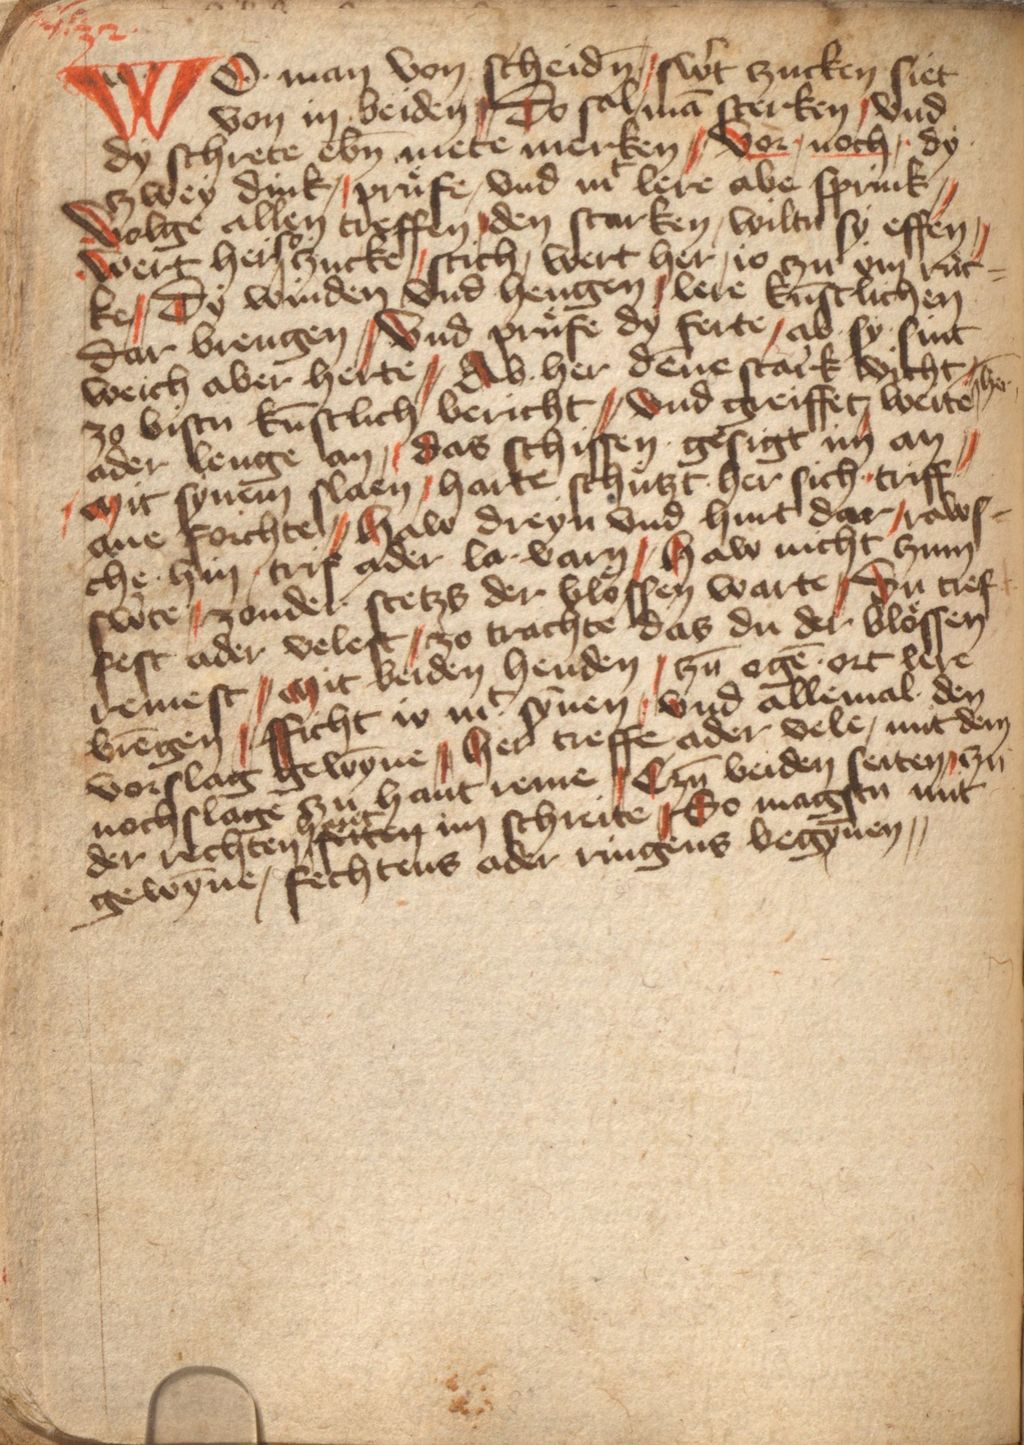 32
WO man von scheidn̄ / swt̉ zucken siet
von in beiden // Do sal man̄ sterken / vnd
dy schrete ebn̄ mete merken // Vor noch / dy
zwey dink / prüfe / vnd mͭ lere abe sprink //
Volge allen treffen / den starken / wiltu sy effen //
Wert her / zo zucke / stich / wert her / io zu ym ruc=
ke // Dy winden vnd hengen / lere kūstlichen
dar brengen // Vnd prüfe dy ferte / ab sy sint
weich aber herte // Ab her dēne stark vicht / her
zo bistu kūstlich bericht // Vnd greiffet weite
ader lenge an / das schissen gesigt im an //
Mit synem slaen / harte schützt her sich triff
ane forchte // Haw dreyn vnd hurt dar / raws=
che hin trif ader la varn // Haw nicht zum
swṫe / zonder stetzs der blössen warte // Du tref
fest ader velest / zo trachte das du der blössen
remest // Mit beiden henden / zū ogē ort lere
brēgen // ficht io mͭ synen / vnd allemal den
vorslag gewyn̄e // Her treffe ader vele / mit dem
nochslage zu hant reme // Czū beiden seiten / zu
der rechten hant seiten im schreite // So magstu mit
gewyn̄e / fechtens ader ringens begyn̄en //